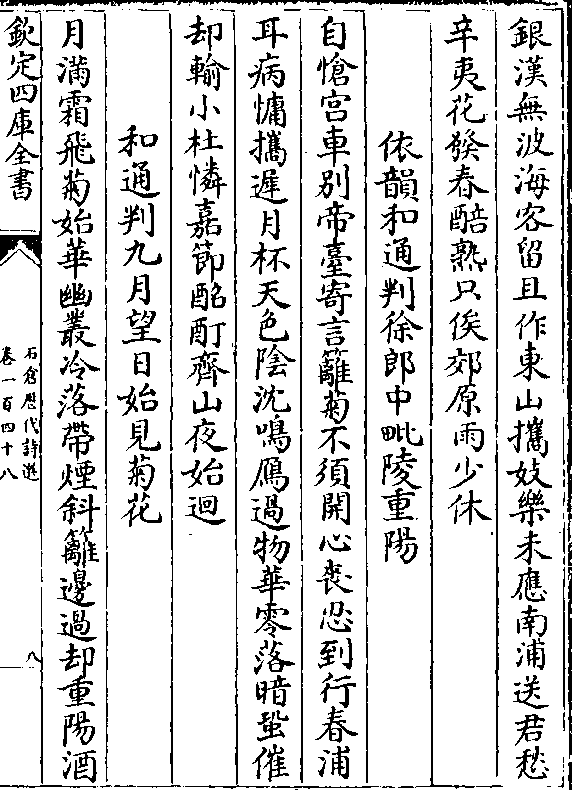 銀漢無波海客留且作東山攜妓樂未應南浦送君愁
辛夷花發春醅熟只俟郊原雨少休
依韻和通判徐郎中毗陵重陽
自愴宮車別帝臺寄言籬菊不須開心喪忍到行春浦
耳病慵攜遲月杯天色陰沈鳴鴈過物華零落暗蛩催
却輸小杜憐嘉節酩酊齊山夜始迴
和通判九月望日始見菊花
月滿霜飛菊始華幽叢冷落帶煙斜籬邊過却重陽酒
欽定四庫全書
石倉歷代詩選
卷一百四十八
八